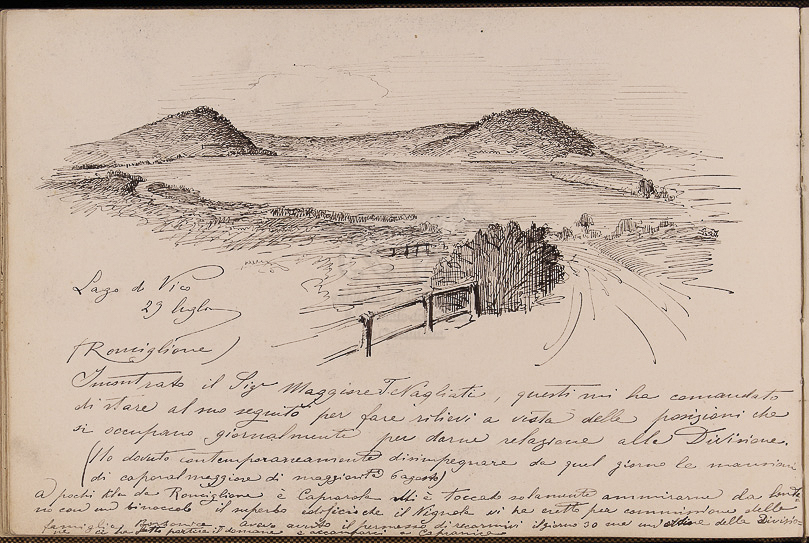 Lago di Vico
29 luglio
(Ronciglione)
Incontrato il Sigr Maggiore T Nagliati, questi mi ha comandato
di stare al suo seguito per fare rilievi a vista delle posizioni che
si occupano giornalmente per darne relazione alla Divisione.
(Ho dovuto contemporaneamente disimpegnare da quel giorno le mansioni
di caporal maggiore di maggiorità 6 agosto)
A pochi Klm da Ronciglione è Caprarola. Mi è toccato solamente ammirarne da lonta
no con un binoccolo il superbo edificio che il Vignola vi ha eretto per commissione della
famiglia Farnese avevo avuto il permesso di recarmici il giorno 30 ma un ordine della Divisio
ne ci ha fatto partire il domani e accamparci a Capranica